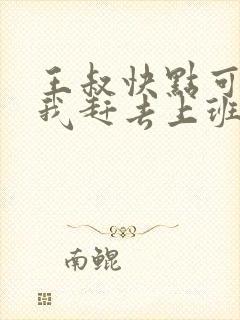 王叔快點可
我赶去上班
南鲲